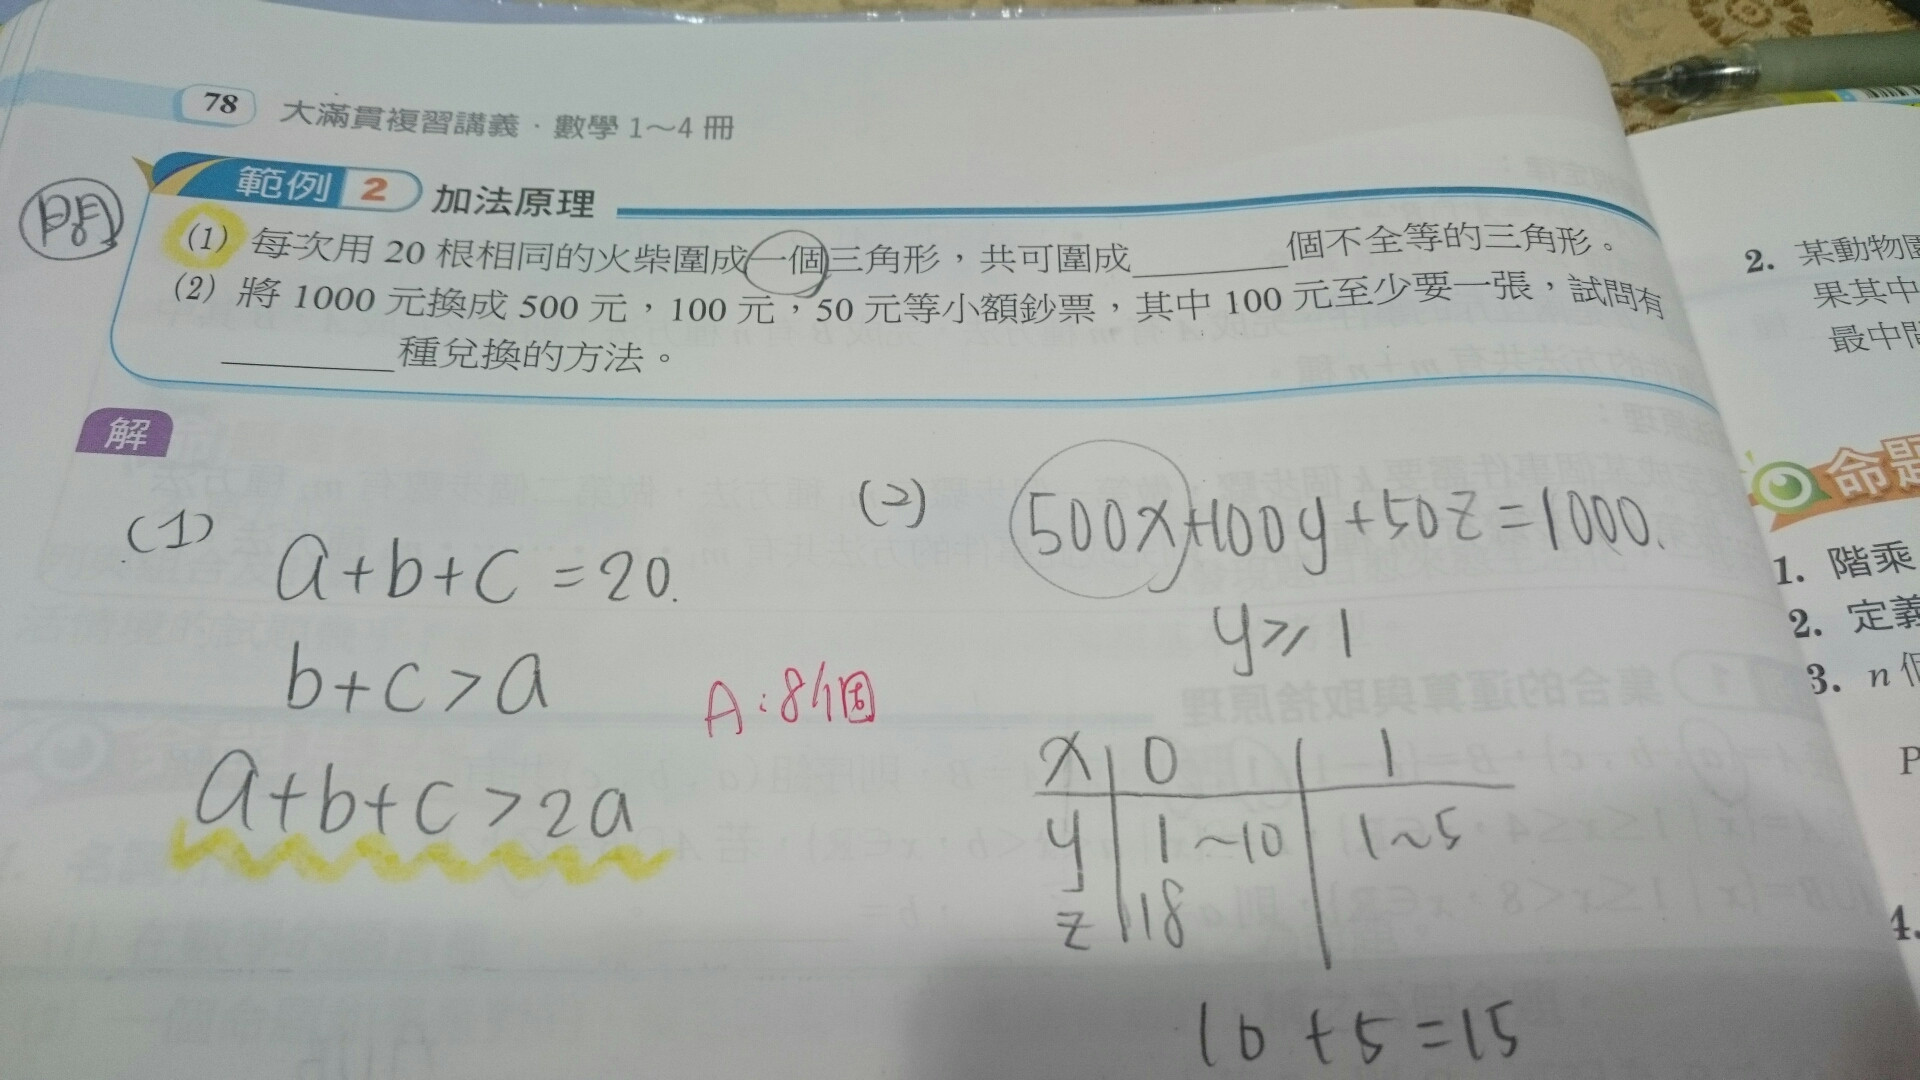 78 大滿貫複習講義．數學 1～4 冊
問
範例 2 加法原理
(1) 每次用 20 根相同的火柴圍成一個三角形，共可圍成________個不全等的三角形。
(2) 將 1000 元換成 500 元，100 元，50 元等小額鈔票，其中 100 元至少要一張，試問有
________種兌換的方法。
解
(1)
a+b+c=20.
b+c>a
a+b+c>2a
A:8個
(2) 500x+100y+50z=1000.
y≥1
x 0 1
y 1~10 1~5
z 18
10+5=15
2. 某動物園
果其中
最中間
命題
1. 階乘
2. 定義
3. n 個
P
4.